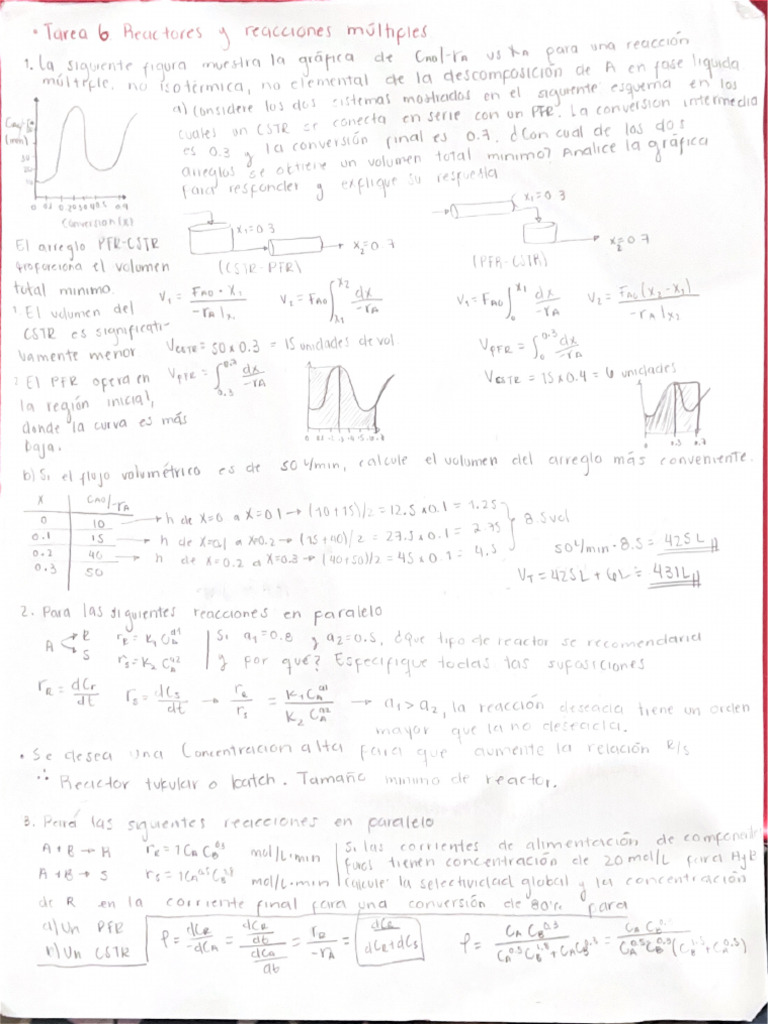 • Tarea 6 Reactores y reacciones múltiples
1. La siguiente figura muestra la gráfica de vs para una reacción
múltiple, no isotérmica, no elemental de la descomposición de A en fase líquida
a) Considere los dos sistemas mostrados en el siguiente esquema en los
cuales un CSTR se conecta en serie con un PFR. La conversion intermedia
es 0.3 y la conversión final es 0.7. ¿Con cual de los dos
arreglos se obtiene un volumen total minimo? Analice la gráfica
para responder y explique su respuesta
(min)
Conversion (x)
x₁=0.3
x₂=0.7
(CSTR-PFR)
x₁=0.3
x₂=0.7
(PFR-CSTR)
El arreglo PFR-CSTR
proporciona el volumen
total minimo.
1. El volumen del
CSTR es significati-
vamente menor
2. El PFR opera en
la región inicial,
donde la curva es más
baja.
V₁ = FAO · X₁ / -rA|x₁
V₂ = FAO ∫x₁^x₂ dx / -rA
V₁ = FAO ∫0^x₁ dx / -rA
V₂ = FAO (x₂-x₁) / -rA|x₂
VCSTR = 50 x 0.3 = 15 unidades de vol
VPFR = ∫ dx / -rA
VPFR = ∫0^0.3 dx / -rA
VCSTR = 15 x 0.4 = 6 unidades
b) Si el flujo volumétrico es de 50 L/min, calcule el volumen del arreglo más conveniente.
X CAO/-rA
0 10 → h de x=0 a x=0.1 → (10+15)/2 = 12.5 x 0.1 = 1.25
0.1 15 → h de x=0.1 a x=0.2 → (15+40)/2 = 27.5 x 0.1 = 2.75
0.2 40 → h de x=0.2 a x=0.3 → (40+50)/2 = 45 x 0.1 = 4.5
0.3 50
8.5 vol
50 L/min · 8.5 = 425 L
VT = 425 L + 6 L = 431 L
2. Para las siguientes reacciones en paralelo
A R S
rR = k₁ CA^a1
rS = k₂ CA^a2
Si a₁=0.8 y a₂=0.5, ¿que tipo de reactor se recomendaria
y por qué? Especifique todas las suposiciones
rR = dCr/dt rS = dCs/dt → rR/rS = k₁CA^a1 / k₂CA^a2 → a₁ > a₂, la reacción deseada tiene un orden
mayor que la no deseada.
• Se desea una Concentracion alta para que aumente la relación R/S
∴ Reactor tubular o batch. Tamaño minimo de reactor.
3. Para las siguientes reacciones en paralelo
A + B → R rR = 1 CA CB^0.3 mol/L·min
A + B → S rS = 1 CA^0.5 CB^1.8 mol/L·min
Si las corrientes de alimentación de
puros tienen concentración de 20 mol/L para A y B
calcule la selectividad global y la concentración
de R en la corriente final para una conversión de 80% para
a) Un PFR
b) Un CSTR
φ = dCR / -dCA = dCR/dt / dCA/dt = rR / -rA = dCR / dCR + dCS
φ = CA CB^0.3 / CA^0.5 CB^1.8 + CA CB^0.3